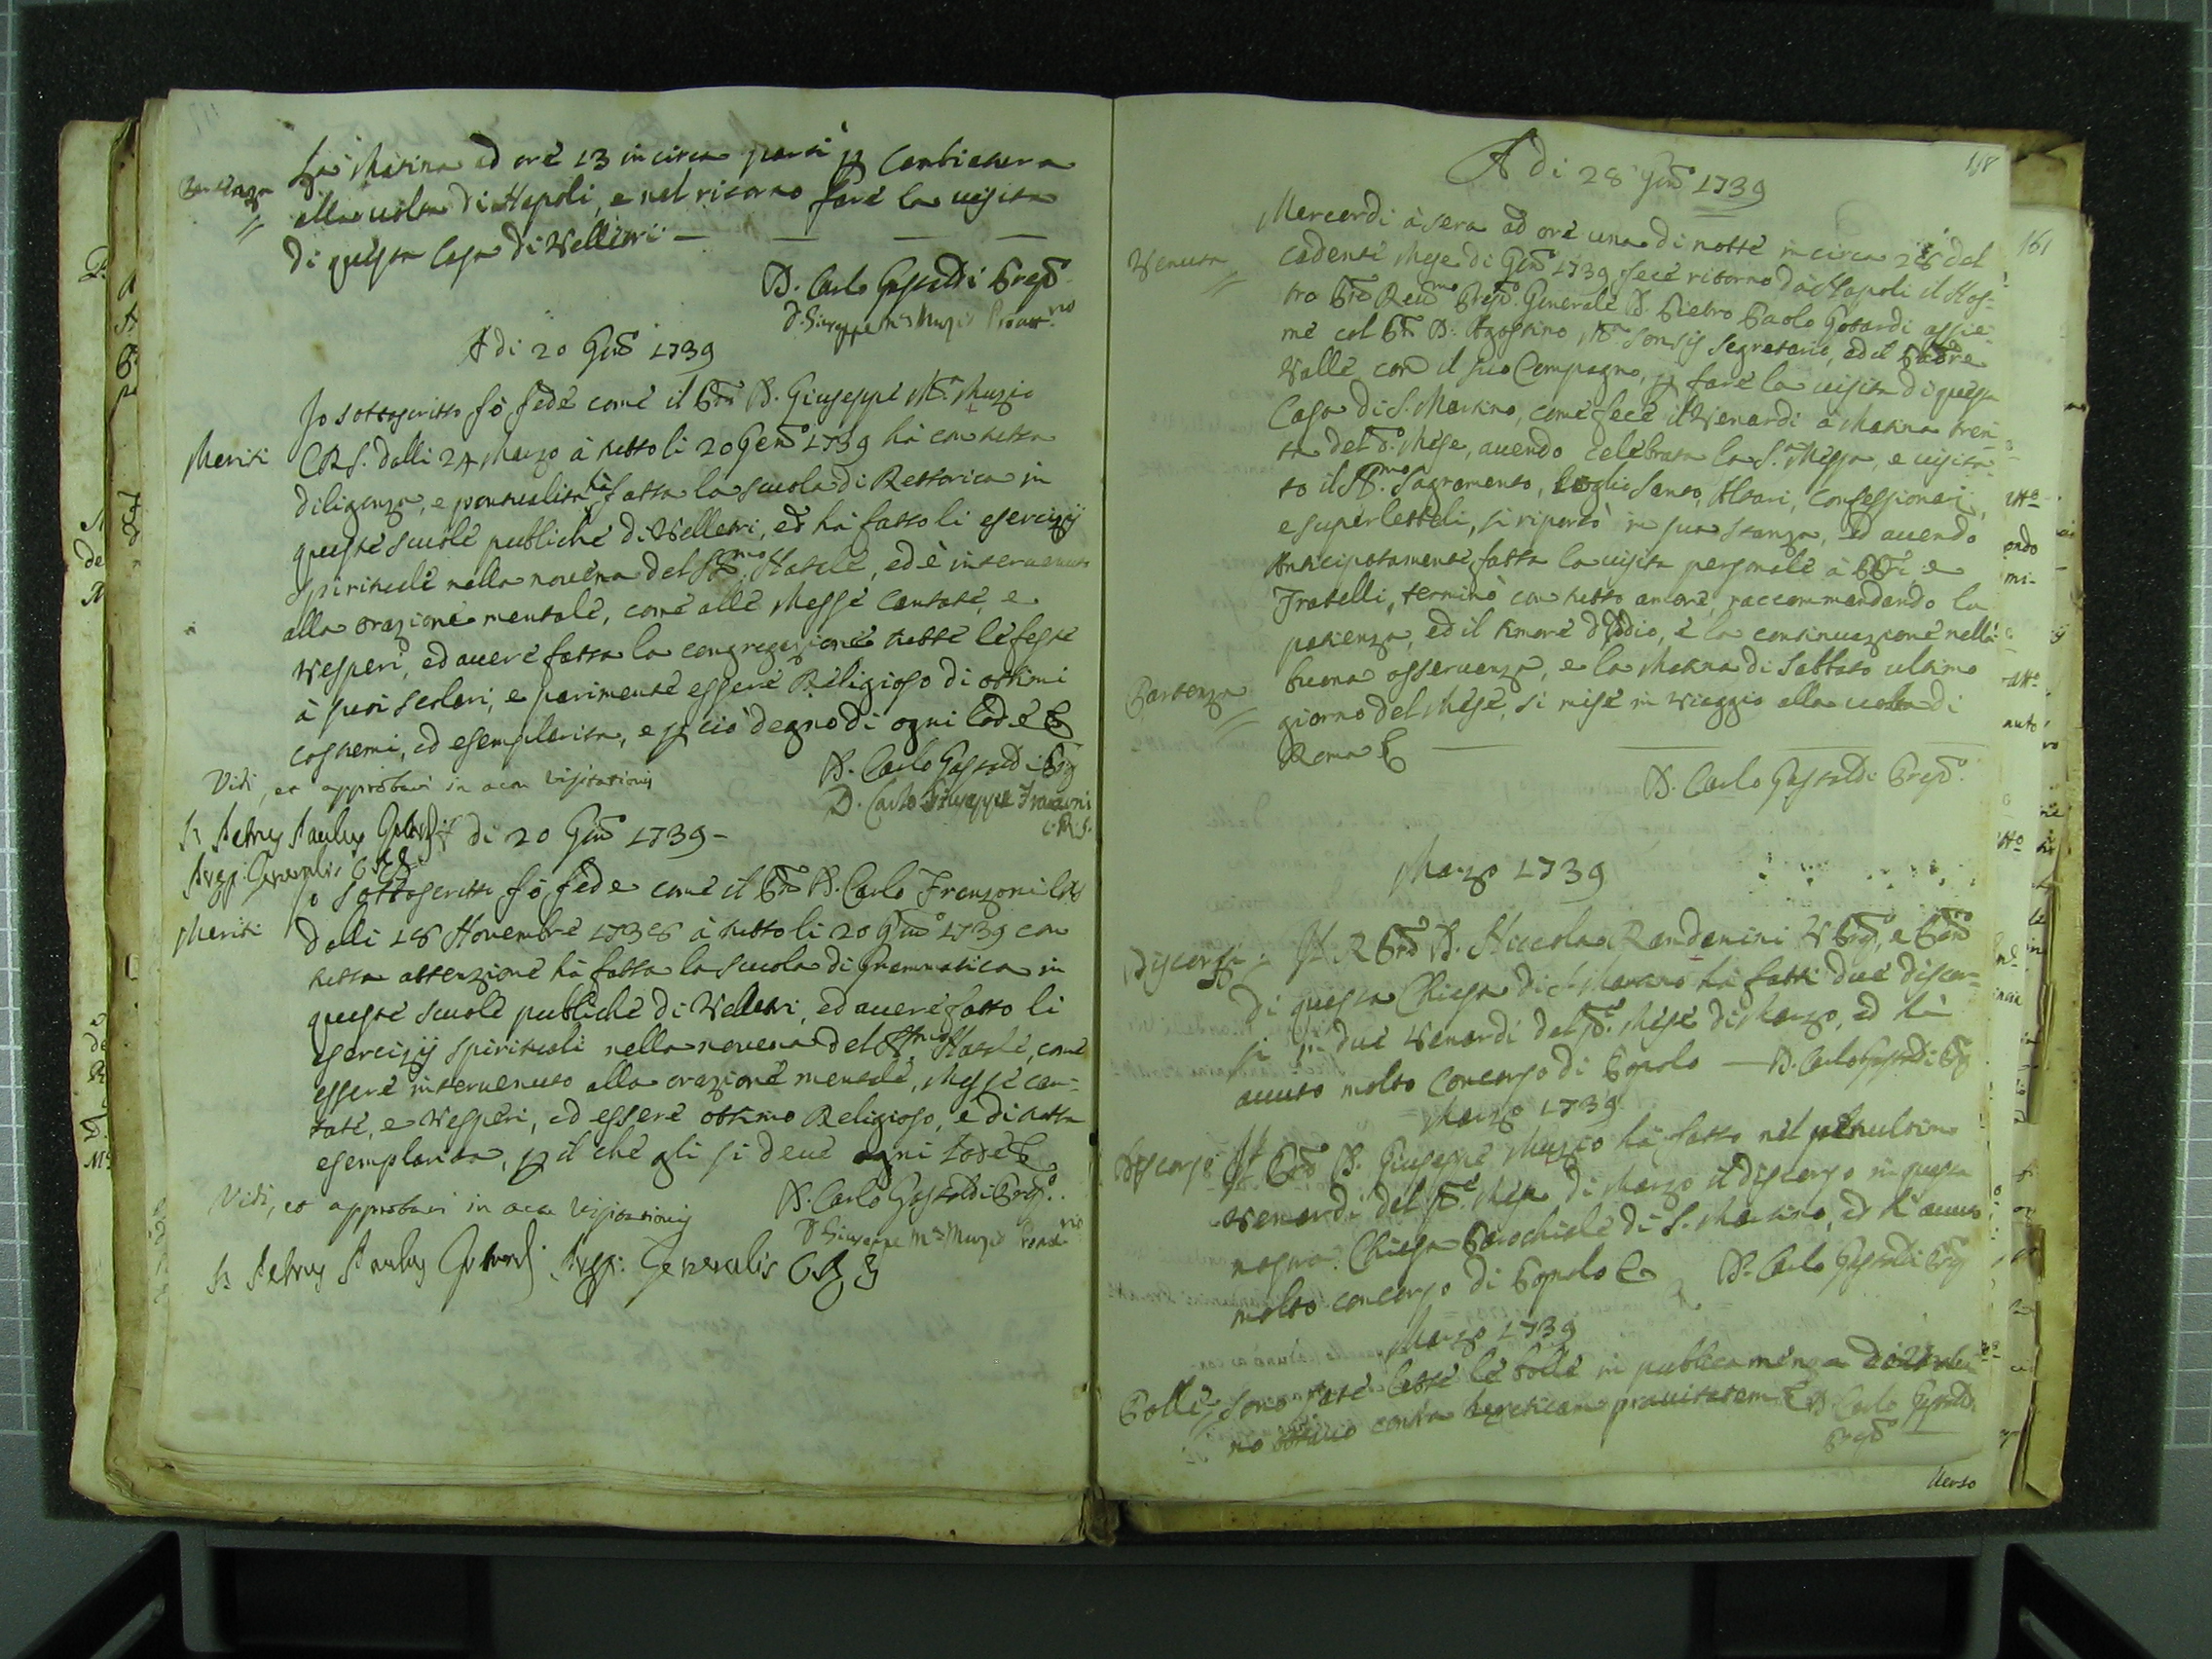 Partenza
La Matina ad ore 13 in circa partì p Cambiatura
alla uolta di Napoli, e nel ritorno fare la uisita
di questa Casa di Velletri —
D. Carlo Gastaldi Prepto
D. Giuseppe Ma Muzio Proatt.rio
A di 20 Gño 1739
Meriti
Jo sottoscritto fò fede come il Pre D. Giuseppe Ma. Muzio
CRS. dalli 24 Marzo à tutto li 20 Geño 1739 hà con tutta
diligenza, e pontualità hà fatta la scuola di Rettorica in
queste scuole publiche di Velletri, ed hà fatto li esercizij
spirituali nella novena del SSmo Natale, ed è interuenuto
alla orazione mentale, come alle Messe Cantate, e
Vesperi, ed auere fatta la congregazione tutte le feste
à suoi scolari, e parimente essere Religioso di ottimi
costumi, ed esemplarità, e p ciò degno di ogni lode &
D. Carlo Gastaldi Prep
Vidi, et approbavi in actu Visitationis
D. Carlo Giuseppe Franzoni
C.R.S.
D. Petrus Paulus Gotardi
Prep. Generalis CRS
A di 20 Gño 1739 —
Jo sottoscritto fò fede come il Pre D. Carlo Franzoni CRS
Meriti
dalli 18 Novembre 1738 à tutto li 20 Gño 1739 con
tutta attenzione hà fatta la scuola di Grammatica in
queste scuole publiche di Velletri, ed auere fatto li
esercizij spirituali nella novena del SSmo Natale, come
essere interuenuto alla orazione mentale, Messe can=
tate, e Vesperi, ed essere ottimo Religioso, e di tutta
esemplarità, p il che gli si deue ogni lode &
D. Carlo Gastaldi Prepo.
Vidi, et approbavi in actu Visitationis
D. Giuseppe Ma Muzio Proattrio
D. Petrus Paulus Gotardi Prep: Generalis CRS
158
161
A di 28 Gño 1739
Venuta
Mercordi à sera ad ore una di notte in circa 28 del
cadente Mese di Gño 1739 fece ritorno dà Napoli il Nos=
tro Pre Reumo Prepo. Generale D. Pietro Paolo Gotardi assie=
me col Pre D. Agostino Ma Sonsis Segretario, ed il Padre
Valle con il suo Compagno, p fare la uisita di questa
Casa di S. Martino, come fece il Venardi à Matina tren=
ta del do. Mese, auendo celebrata la S. Messa, e uisita=
to il SSmo Sagramento, loglio santo, Altari, Confessionari,
e superlettili, si riportò in sua stanza, ed auendo
Anticipatamente fatta la uisita personale à PPri, e
Fratelli, terminò con tutto amore, raccommandando la
patienza, ed il timore d'Iddio, e la continuazione nella
Partenza
buona osseruanza, e la Matina di Sabbato ultimo
giorno del Mese, si mise in Viaggio alla uolta di
Roma &
D. Carlo Gastaldi Prepo.
Marzo 1739
Discorsi
Il R Pre D. Niccola Randanini V Prepo, e
di questa Chiesa di S. Martino hà fatti due discor=
si in due Venardi del Mese di Marzo, ed hà
auuto molto Concorso di Popolo — D. Carlo Gastaldi Prep
Marzo 1739
Discorso
Il Pre D. Giuseppe Muzio hà fatto nel penultimo
Venardi del Mese di Marzo il discorso in questa
nostra Chiesa Parochiale di S. Martino, ed hà auuto
molto concorso di Popolo & D. Carlo Gastaldi Prep
Marzo 1739
Bolle
Sono state lette le bolle in publica mensa
no ottauo contra hereticam prauitatem & D. Carlo Gastaldi
Prepo
Verso